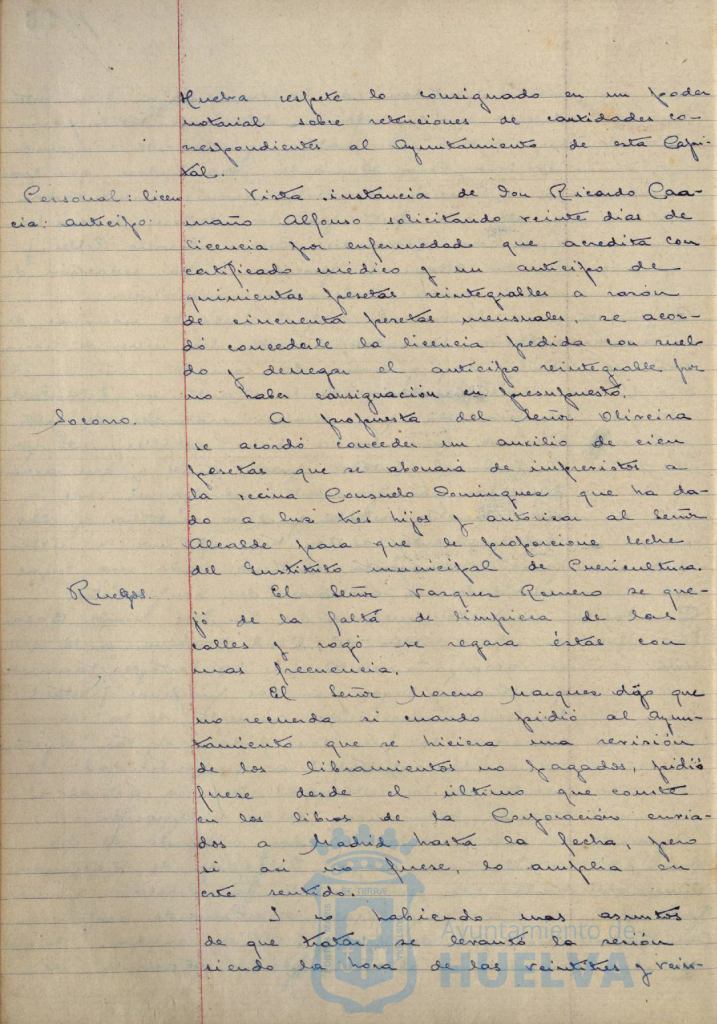 Huelva respete lo consignado en un poder
notarial sobre retenciones de cantidades co-
rrespondientes al Ayuntamiento de esta Capi-
tal.
Personal: licen
cia: anticipo.
Vista instancia de Don Ricardo Caa-
maño Alfonso solicitando veinte dias de
licencia por enfermedad que acredita con
certificado médico y un anticipo de
quinientas pesetas reintegrables a razón
de cincuenta pesetas mensuales, se acor-
dó concederle la licencia pedida con suel-
do y denegar el anticipo reintegrable por
no haber consignación en presupuesto.
Socorro.
A propuesta del Señor Oliveira
se acordó conceder un auxilio de cien
pesetas que se abonará de imprevistos a
la vecina Consuelo Dominguez que ha da-
do a luz tres hijos y autorizar al Señor
Alcalde para que le proporcione leche
del Instituto municipal de Puericultura.
Ruegos.
El Señor Vazquez Romero se que-
jó de la falta de limpieza de las
calles y rogó se regara éstas con
mas frecuencia.
El Señor Moreno Marquez dijo que
no recuerda si cuando pidió al Ayun-
tamiento que se hiciera una revisión
de los libramientos no pagados, pidió
fuese desde el último que conste
en los libros de la Corporación envia-
dos a Madrid hasta la fecha, pero
si asi no fuese, lo amplia en
este sentido.
Y no habiendo mas asuntos
de que tratar se levantó la sesión
siendo la hora de las veintitres y vein-
Ayuntamiento de
HUELVA